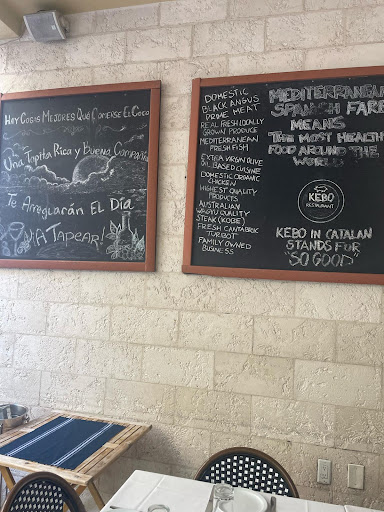 Hay Cosas Mejores Que Comerse El Coco
Una Tapita Rica y Buena Compañia
Te Arreglarán El Día
¡A Tapear!
DOMESTIC
BLACK ANGUS
PRIME MEAT
REAL FRESH LOCALLY
GROWN PRODUCE
MEDITERRANEAN
FRESH FISH
EXTRA VIRGIN OLIVE
OIL BASED CUISINE
DOMESTIC ORGANIC
CHICKEN
HIGHEST QUALITY
PRODUCTS
AUSTRALIAN
WAGYU QUALITY
STEAK (KOBE)
FRESH CANTABRIC
TURBOT
FAMILY OWNED
BUSINESS
MEDITERRANEAN
SPANISH FARE
MEANS
THE MOST HEALTHY
FOOD AROUND THE
WORLD
KEBO
RESTAURANT
KEBO IN CATALAN
STANDS FOR
"SO GOOD"